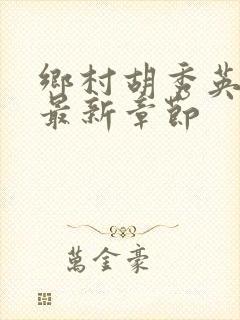 鄉村胡秀英
最新章節
萬金豪